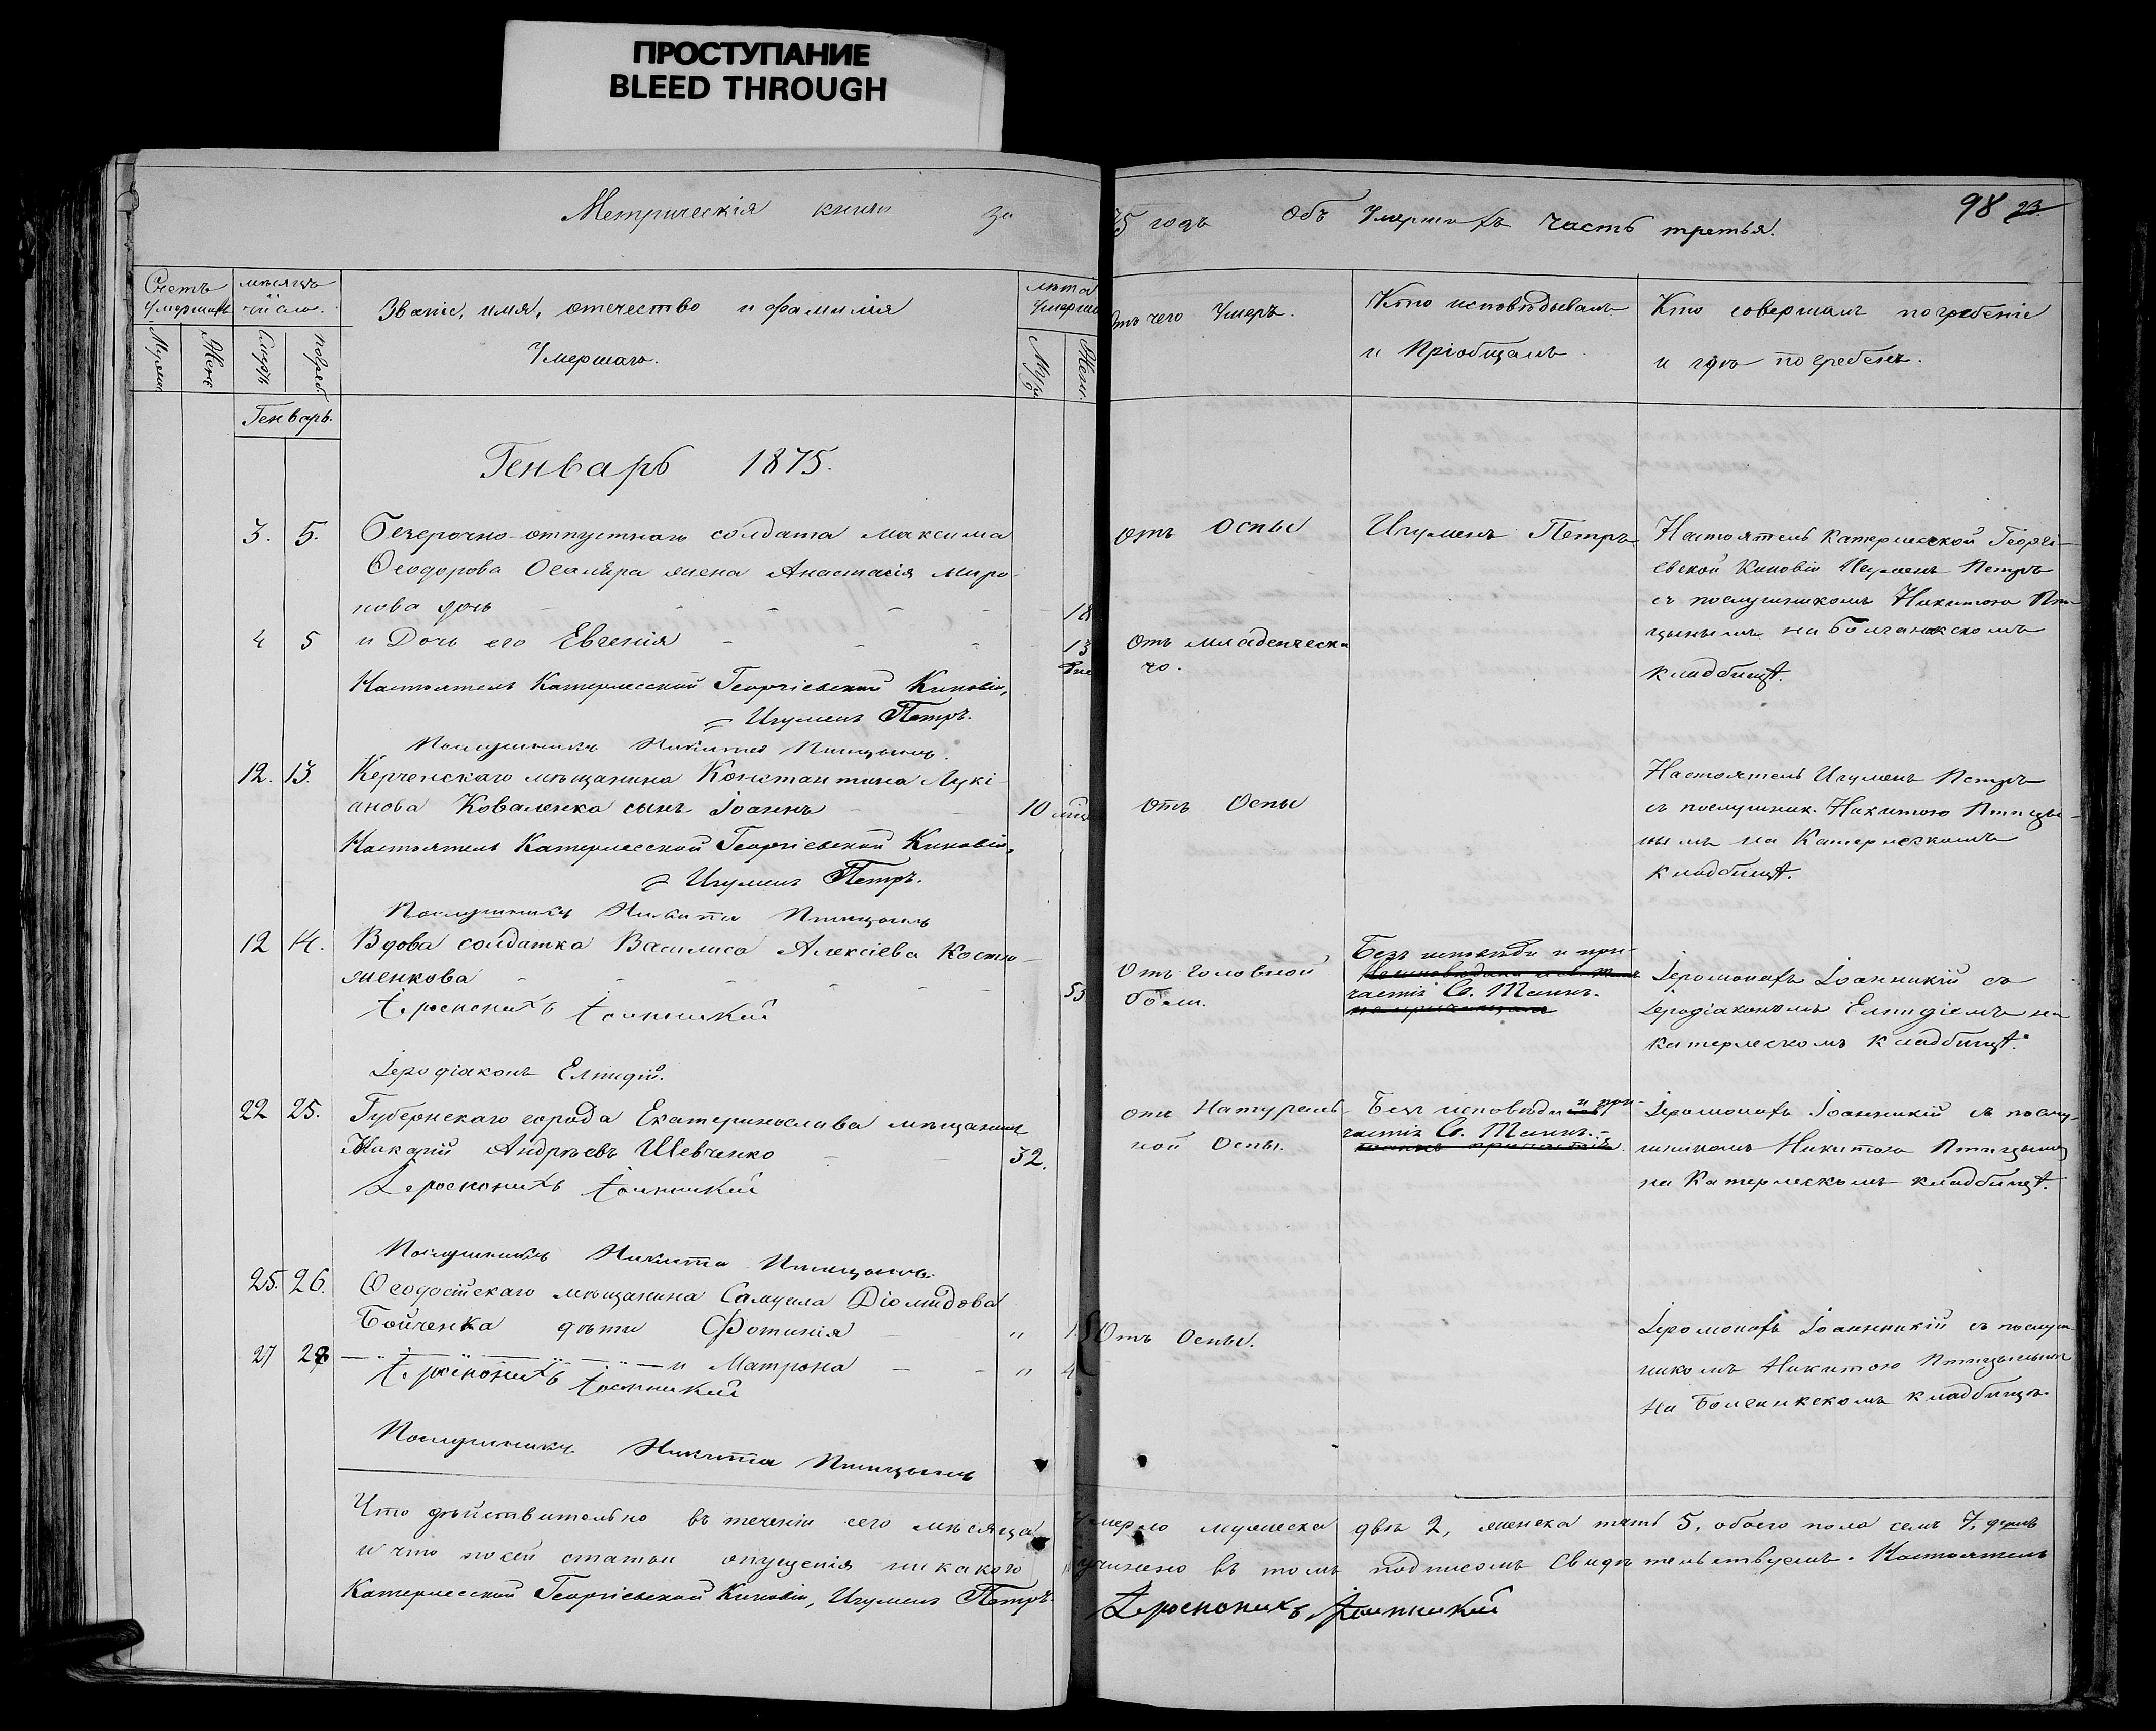 ПРОСТУПАНИЕ
BLEED THROUGH
Метрическія книги за
75 годъ Объ Умершихъ часть третья.
98 23
Счетъ Умершихъ
мѣсяцъ и число.
Званіе, имя, отечество и фамилія
Умершаго.
лѣта Умерша
Отъ чего Умеръ.
Кто исповѣдывалъ
и Пріобщалъ
Кто совершалъ погребеніе
и гдѣ погребенъ.
Мужск
Женс
Смерть
погреб
Муж
Женс.
Генварь.
Генварь 1875.
3. 5. Безсрочно-отпустнаго солдата Максима
Ѳеодорова жена Анастасія Миро-
нова дочь 18
Отъ Оспы
Игуменъ Петръ
Настоятель Катерлесской Георгі-
евской Киновіи Игуменъ Петръ
съ послушникомъ Никитою Пти-
цынымъ на Болганакскомъ
кладбищѣ.
4 5 и Дочь его Евгенія 13 дне
Отъ младенческа
го.
Настоятель Катерлесской Георгіевской Киновіи,
Игуменъ Петръ.
Послушникъ Никита Птицынъ.
12. 13. Керченскаго мѣщанина Константина Лукі-
анова Коваленка сынъ Іоаннъ 10 мѣц
Отъ Оспы
Настоятель Игуменъ Петръ
съ послушник. Никитою Птицы-
нымъ на Катерлезкомъ
кладбищѣ.
Настоятель Катерлесской Георгіевской Киновіи,
Игуменъ Петръ.
Послушникъ Никита Птицынъ
12 14. Вдова солдатка Василиса Алексіева Костю-
женкова 55
Отъ головной
боли.
Безъ исповѣди и при-
частія Св. Таинъ.
Іеромонахъ Іоанникій съ
Іеродіакономъ Елпидіемъ на
Катерлезкомъ кладбищѣ.
Іеромонахъ Іоанникій
Іеродіаконъ Елпидій.
22 25. Губернскаго города Екатеринослава мѣщанинъ
Макарій Андреевъ Шевченко 32.
отъ Натураль-
ной Оспы.
Безъ исповѣди и при-
частія Св. Таинъ.
Іеромонахъ Іоанникій съ послу-
шникомъ Никитою Птицыны
на Катерлезкомъ кладбищѣ.
Іеромонахъ Іоанникій
Послушникъ Никита Птицынъ.
25. 26. Ѳеодосійскаго мѣщанина Самуила Діомидова
Бойченка дѣти Фотинія " 1
27 28 и Матрона " 4
Отъ Оспы.
Іеромонахъ Іоанникій съ послуш
никомъ Никитою Птицынымъ
на Болганакскомъ кладбищѣ.
Іеромонахъ Іоанникій
Послушникъ Никита Птицынъ
Что дѣйствительно въ теченіи сего мѣсяца умерло мужеска два 2, женска пять 5, обоего пола семь 7,
и что по сей статьи опущенія никакого учинено въ томъ подписомъ Свидѣтельствуемъ. Настоятель
Катерлесской Георгіевской Киновіи, Игуменъ Петръ. Іеромонахъ Іоанникій